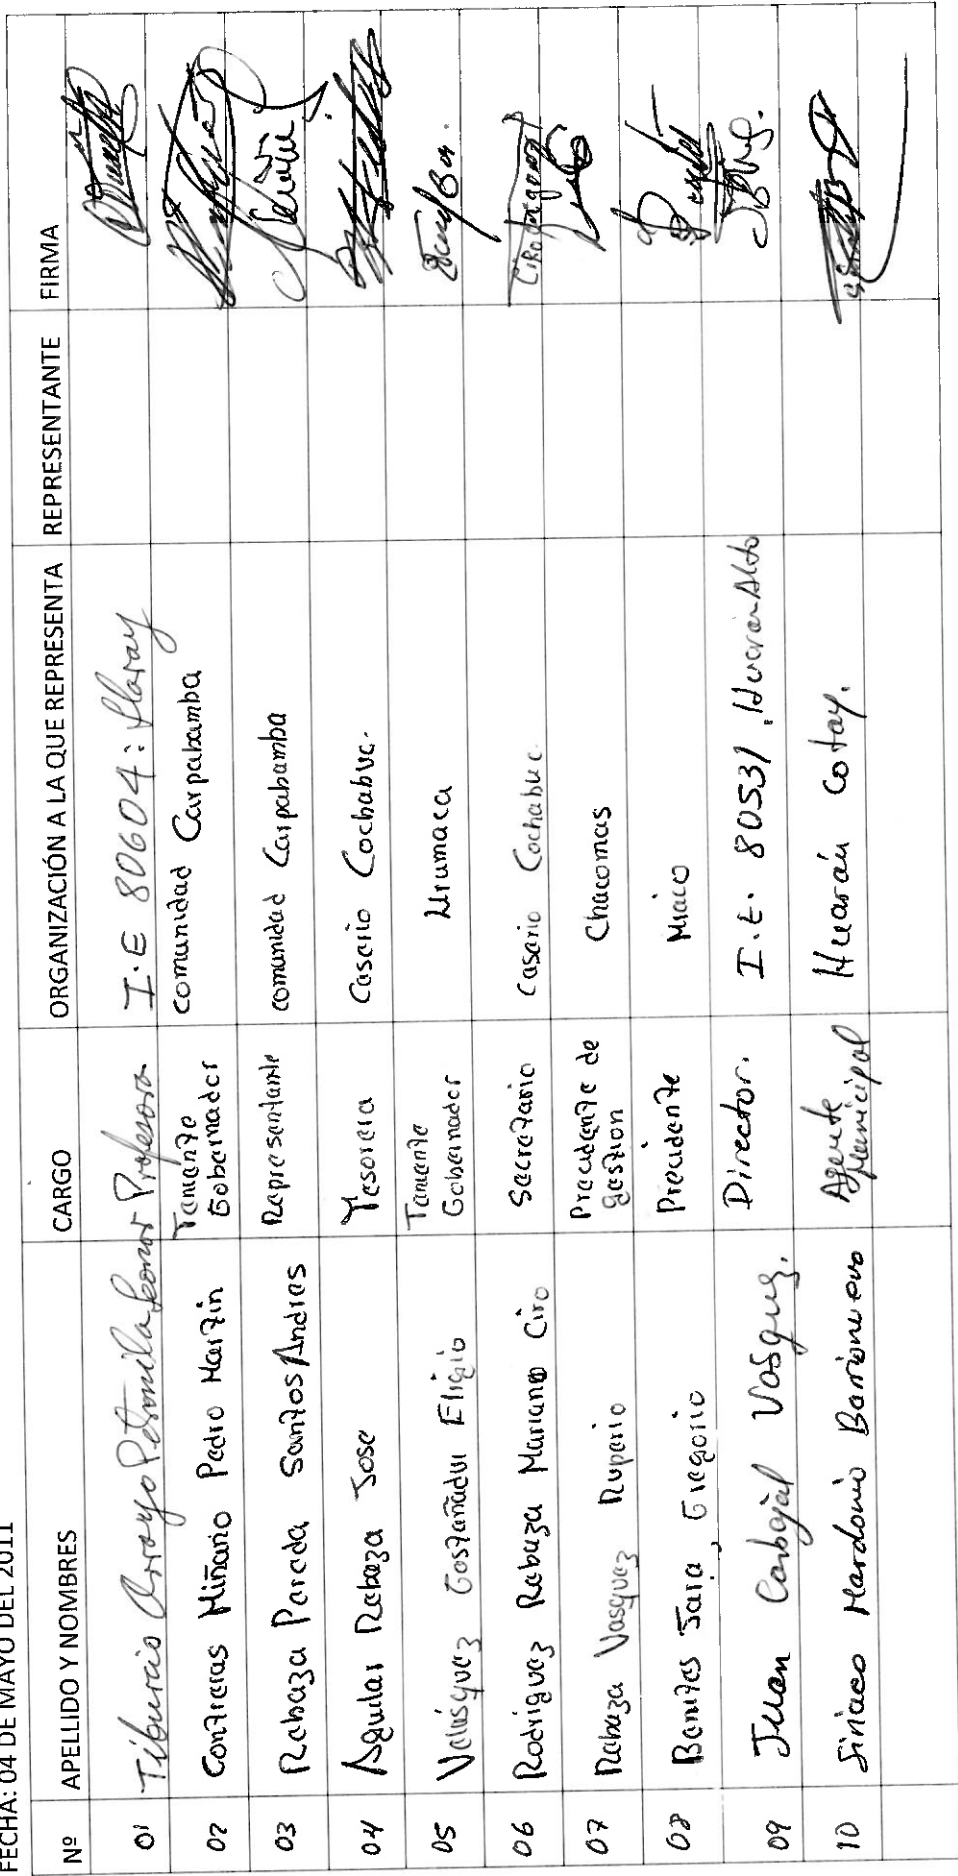 FECHA: 04 DE MAYO DEL 2011
Nº APELLIDO Y NOMBRES CARGO ORGANIZACIÓN A LA QUE REPRESENTA REPRESENTANTE FIRMA
01 Tiburcio Arroyo Petronila Leonor Profesora I.E 80604: Llaray
02 Contreras Miñano Pedro Martin Teniente Gobernador comunidad Carpabamba
03 Rebaza Pareda Santos Andres Representante comunidad Carpabamba
04 Aguilar Rebaza Jose Tesorera Caserio Cochabuc.
05 Velásquez Gostañadui Eligio Teniente Gobernador Urumaca
06 Rodriguez Rebaza Mariano Ciro Secretario Caserio Cochabuc.
07 Rebaza Vasquez Ruperio Precidente de gestion Chacomas
08 Benites Jara, Gregorio Precidente Miaco
09 Juan Carbajal Vasquez. Director. I.E. 80531. Huaran Alto
10 Siriaco Mardonio Barrionuevo Agente Municipal Huarán Cotay.